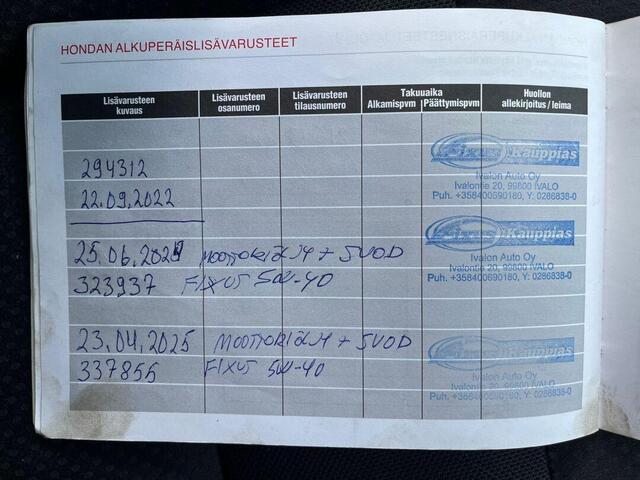 HONDAN ALKUPERÄISLISÄVARUSTEET
Lisävarusteen kuvaus
Lisävarusteen osanumero
Lisävarusteen tilausnumero
Takuuaika
Alkamispvm
Päättymispvm
Huollon allekirjoitus / leima
294312
22.09.2022
Fixus Kauppias
Ivalon Auto Oy
Ivalontie 20, 99800 IVALO
Puh. +358400690180, Y: 0286838-0
25.06.2024 MOOTTORIÖLJY + SUOD
323937 FIXUS 5W-40
Fixus Kauppias
Ivalon Auto Oy
Ivalontie 20, 99800 IVALO
Puh. +358400690180, Y: 0286838-0
23.04.2025 MOOTTORIÖLJY + SUOD
337855 FIXUS 5W-40
Fixus Kauppias
Ivalon Auto Oy
Ivalontie 20, 99800 IVALO
Puh. +358400690180, Y: 0286838-0